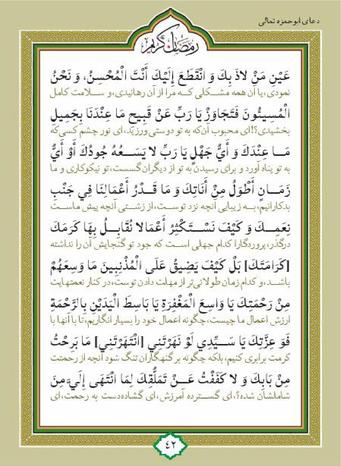 دعای ابوحمزه ثمالی
رمضان کریم
عَيْنِ مَنْ لاذَ بِكَ وَ انْقَطَعَ إِلَيْكَ أَنْتَ الْمُحْسِنُ، وَ نَحْنُ
نمودی، با آن همه مشکلی که مرا از آن رهانیدی، و سلامت کامل
الْمُسِيئُونَ فَتَجَاوَزْ يَا رَبِّ عَنْ قَبِيحِ مَا عِنْدَنَا بِجَمِيلِ
بخشیدی؟! ای محبوب آن‌که به تو دوستی ورزید، ای نور چشم کسی‌که
مَا عِنْدَكَ وَ أَيُّ جَهْلٍ يَا رَبِّ لا يَسَعُهُ جُودُكَ أَوْ أَيُّ
به تو پناه آورد و برای رسیدن به تو از دیگران گسست، تو نیکوکاری و ما
زَمَانٍ أَطْوَلُ مِنْ أَنَاتِكَ وَ مَا قَدْرُ أَعْمَالِنَا فِي جَنْبِ
بدکارانیم، به زیبایی آنچه نزد توست، از زشتی آنچه پیش ما است
نِعَمِكَ وَ كَيْفَ نَسْتَكْثِرُ أَعْمَالا نُقَابِلُ بِهَا كَرَمَكَ
درگذر، پروردگارا کدام جهلی است که جود تو گنجایش آن را نداشته
[كَرَامَتَكَ] بَلْ كَيْفَ يَضِيقُ عَلَى الْمُذْنِبِينَ مَا وَسِعَهُمْ
باشد، و کدام زمان طولانی‌تر از مهلت دادن توست، در کنار نعمتهایت
مِنْ رَحْمَتِكَ يَا وَاسِعَ الْمَغْفِرَةِ يَا بَاسِطَ الْيَدَيْنِ بِالرَّحْمَةِ
ارزش اعمال ما چیست، چگونه اعمال خود را بسیار انگاریم، تا با آنها با
فَوَ عِزَّتِكَ يَا سَيِّدِي لَوْ نَهَرْتَنِي [انْتَهَرْتَنِي] مَا بَرِحْتُ
کرمت برابری کنیم، بلکه چگونه بر گنهکاران تنگ شود آنچه از رحمتت
مِنْ بَابِكَ وَ لا كَفَفْتُ عَنْ تَمَلُّقِكَ لِمَا انْتَهَى إِلَيَّ مِنَ
شاملشان شده؟، ای گسترده آمرزش، ای گشاده‌دست به رحمت، ای
۴۲